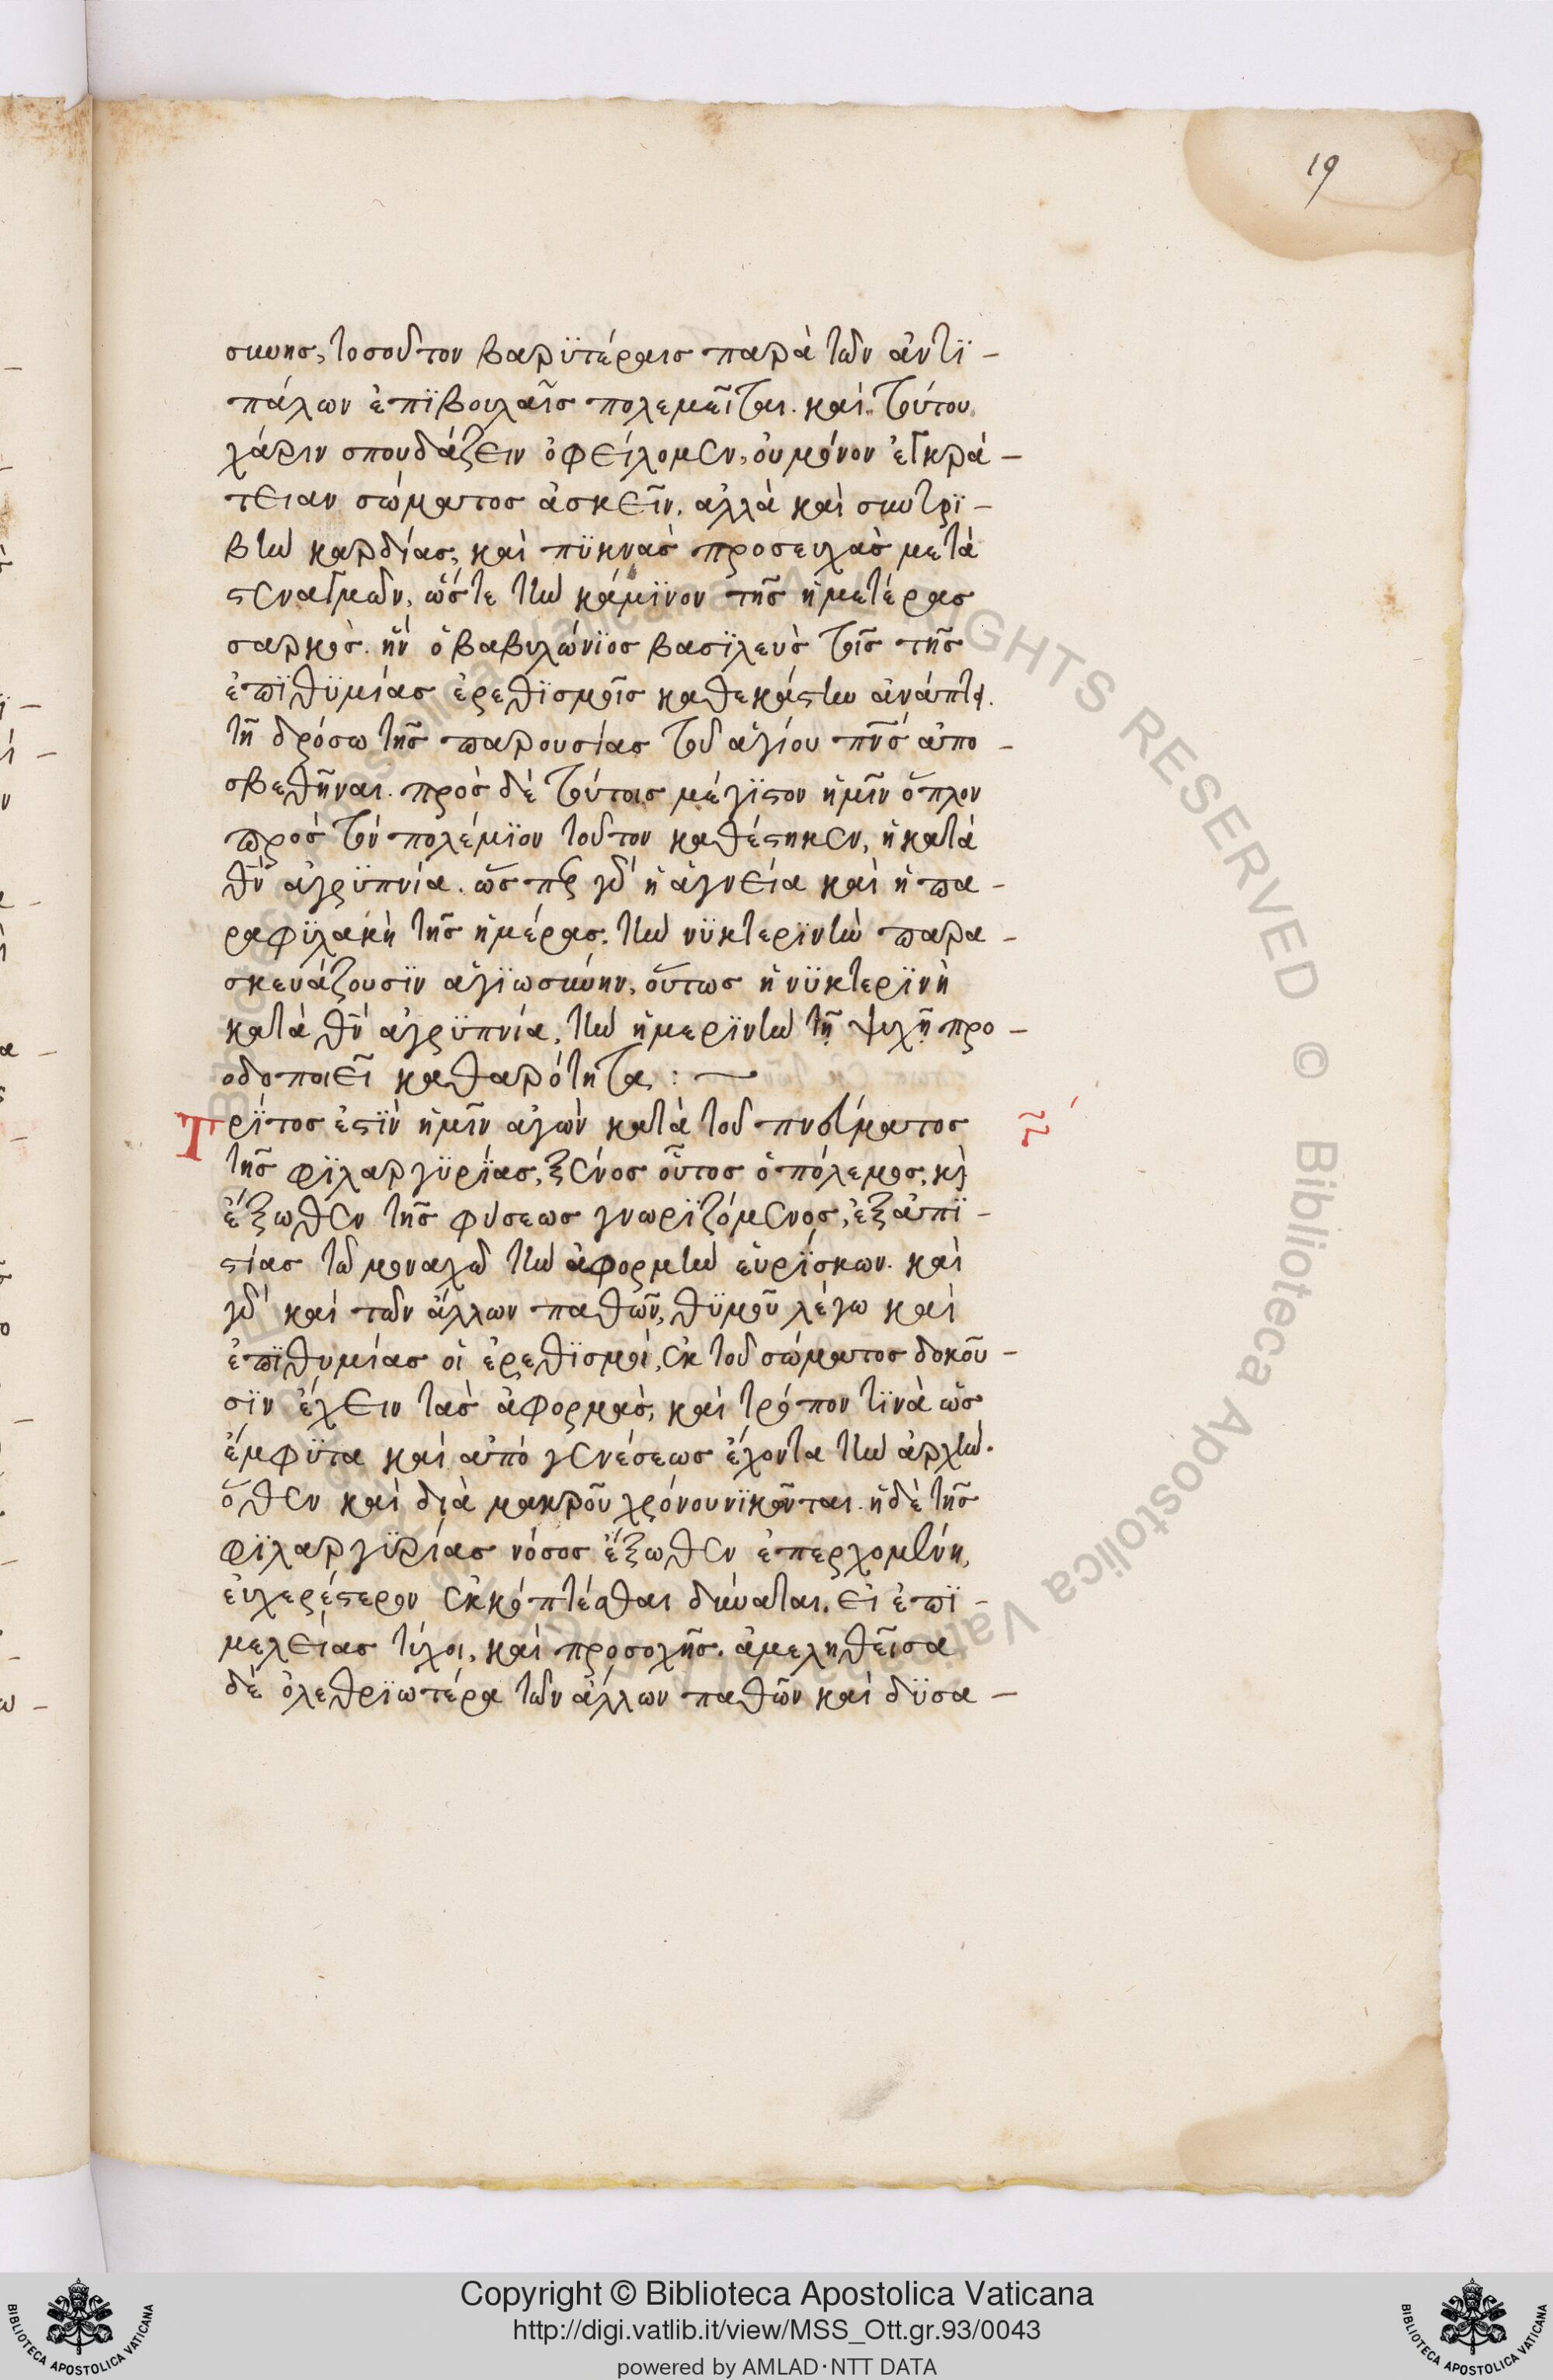 19
σύνης, τοσοῦτον βαρϋτέραις παρὰ τῶν ἀντϊ-
πάλων ἐπϊβουλαῖς πολεμεῖται. καὶ τούτου
χάριν σπουδάζειν ὀφείλομεν, οὐ μόνον ἐγκρά-
τειαν σώματος ἀσκεῖν, ἀλλὰ καὶ συντρϊ-
βὴν καρδίας, καὶ πϋκνὰς προσευχὰς μετὰ
στεναγμῶν, ὥστε τὴν κάμϊνον τῆς ἡμετέρας
σαρκὸς. ἣν ὁ βαβυλώνϊος βασϊλεὺς τοῖς τῆς
ἐπϊθϋμίας ἐρεθϊσμοῖς καθεκάστην ἀνάπτει.
τῆ δρόσω τῆς παρουσίας τοῦ ἁγίου πν̅ς ἀπο-
σβεθῆναι. πρὸς δὲ τούτοις μέγϊστον ἡμῖν ὅπλον
πρὸς τὸν πολέμϊον τοῦτον καθέστηκεν, ἡ κατὰ
θν̅ ἀγρϋπνία. ὥσπερ γὰρ ἡ ἁγνεία καὶ ἡ πα-
ραφϋλακὴ τῆς ἡμέρας, τὴν νϋκτερϊνὴν παρα-
σκευάζουσϊν ἁγϊωσύνην, οὕτως ἡ νϋκτερϊνὴ
κατὰ θν̅ ἀγρϋπνία, τὴν ἡμερϊνὴν τῇ ψυχῇ προ-
οδοποιεῖ καθαρότητα : —
Τρϊτος ἐστϊν ἡμῖν ἀγὼν κατὰ τοῦ πνεύματος
τῆς φϊλαργϋρϊας, ξένος οὗτος ὁ πόλεμος, κὶ
ἔξωθεν τῆς φύσεως γνωρϊζόμενος, ἐξ ἀπϊ-
στίας τῶ μοναχῶ τὴν ἀφορμὴν εὑρϊσκων. καὶ
γὰρ καὶ τῶν ἄλλων παθῶν, θϋμοῦ λέγω καὶ
ἐπϊθυμίας οἱ ἐρεθϊσμοί, ἐκ τοῦ σώματος δοκοῦ-
σϊν ἔχειν τὰς ἀφορμὰς, καὶ τρόπον τϊνὰ ὡς
ἔμφϋτα καὶ ἀπὸ γενέσεως ἔχοντα τὴν ἀρχήν.
ὅθεν καὶ διὰ μακροῦ χρόνου νϊκῶνται. ἡ δὲ τῆς
φϊλαργϋρίας νόσος ἔξωθεν ἐπερχομένη,
εὐχερέστερον ἐκκόπτεσθαι δύναται, εἰ ἐπϊ-
μελείας τύχοι, καὶ προσοχῆς. ἀμεληθεῖσα
δὲ ὀλεθρϊωτέρα τῶν ἄλλων παθῶν καὶ δϋσα-
Copyright © Biblioteca Apostolica Vaticana
http://digi.vatlib.it/view/MSS_Ott.gr.93/0043
powered by AMLAD·NTT DATA
BIBLIOTECA APOSTOLICA VATICANA
BIBLIOTECA APOSTOLICA VATICANA